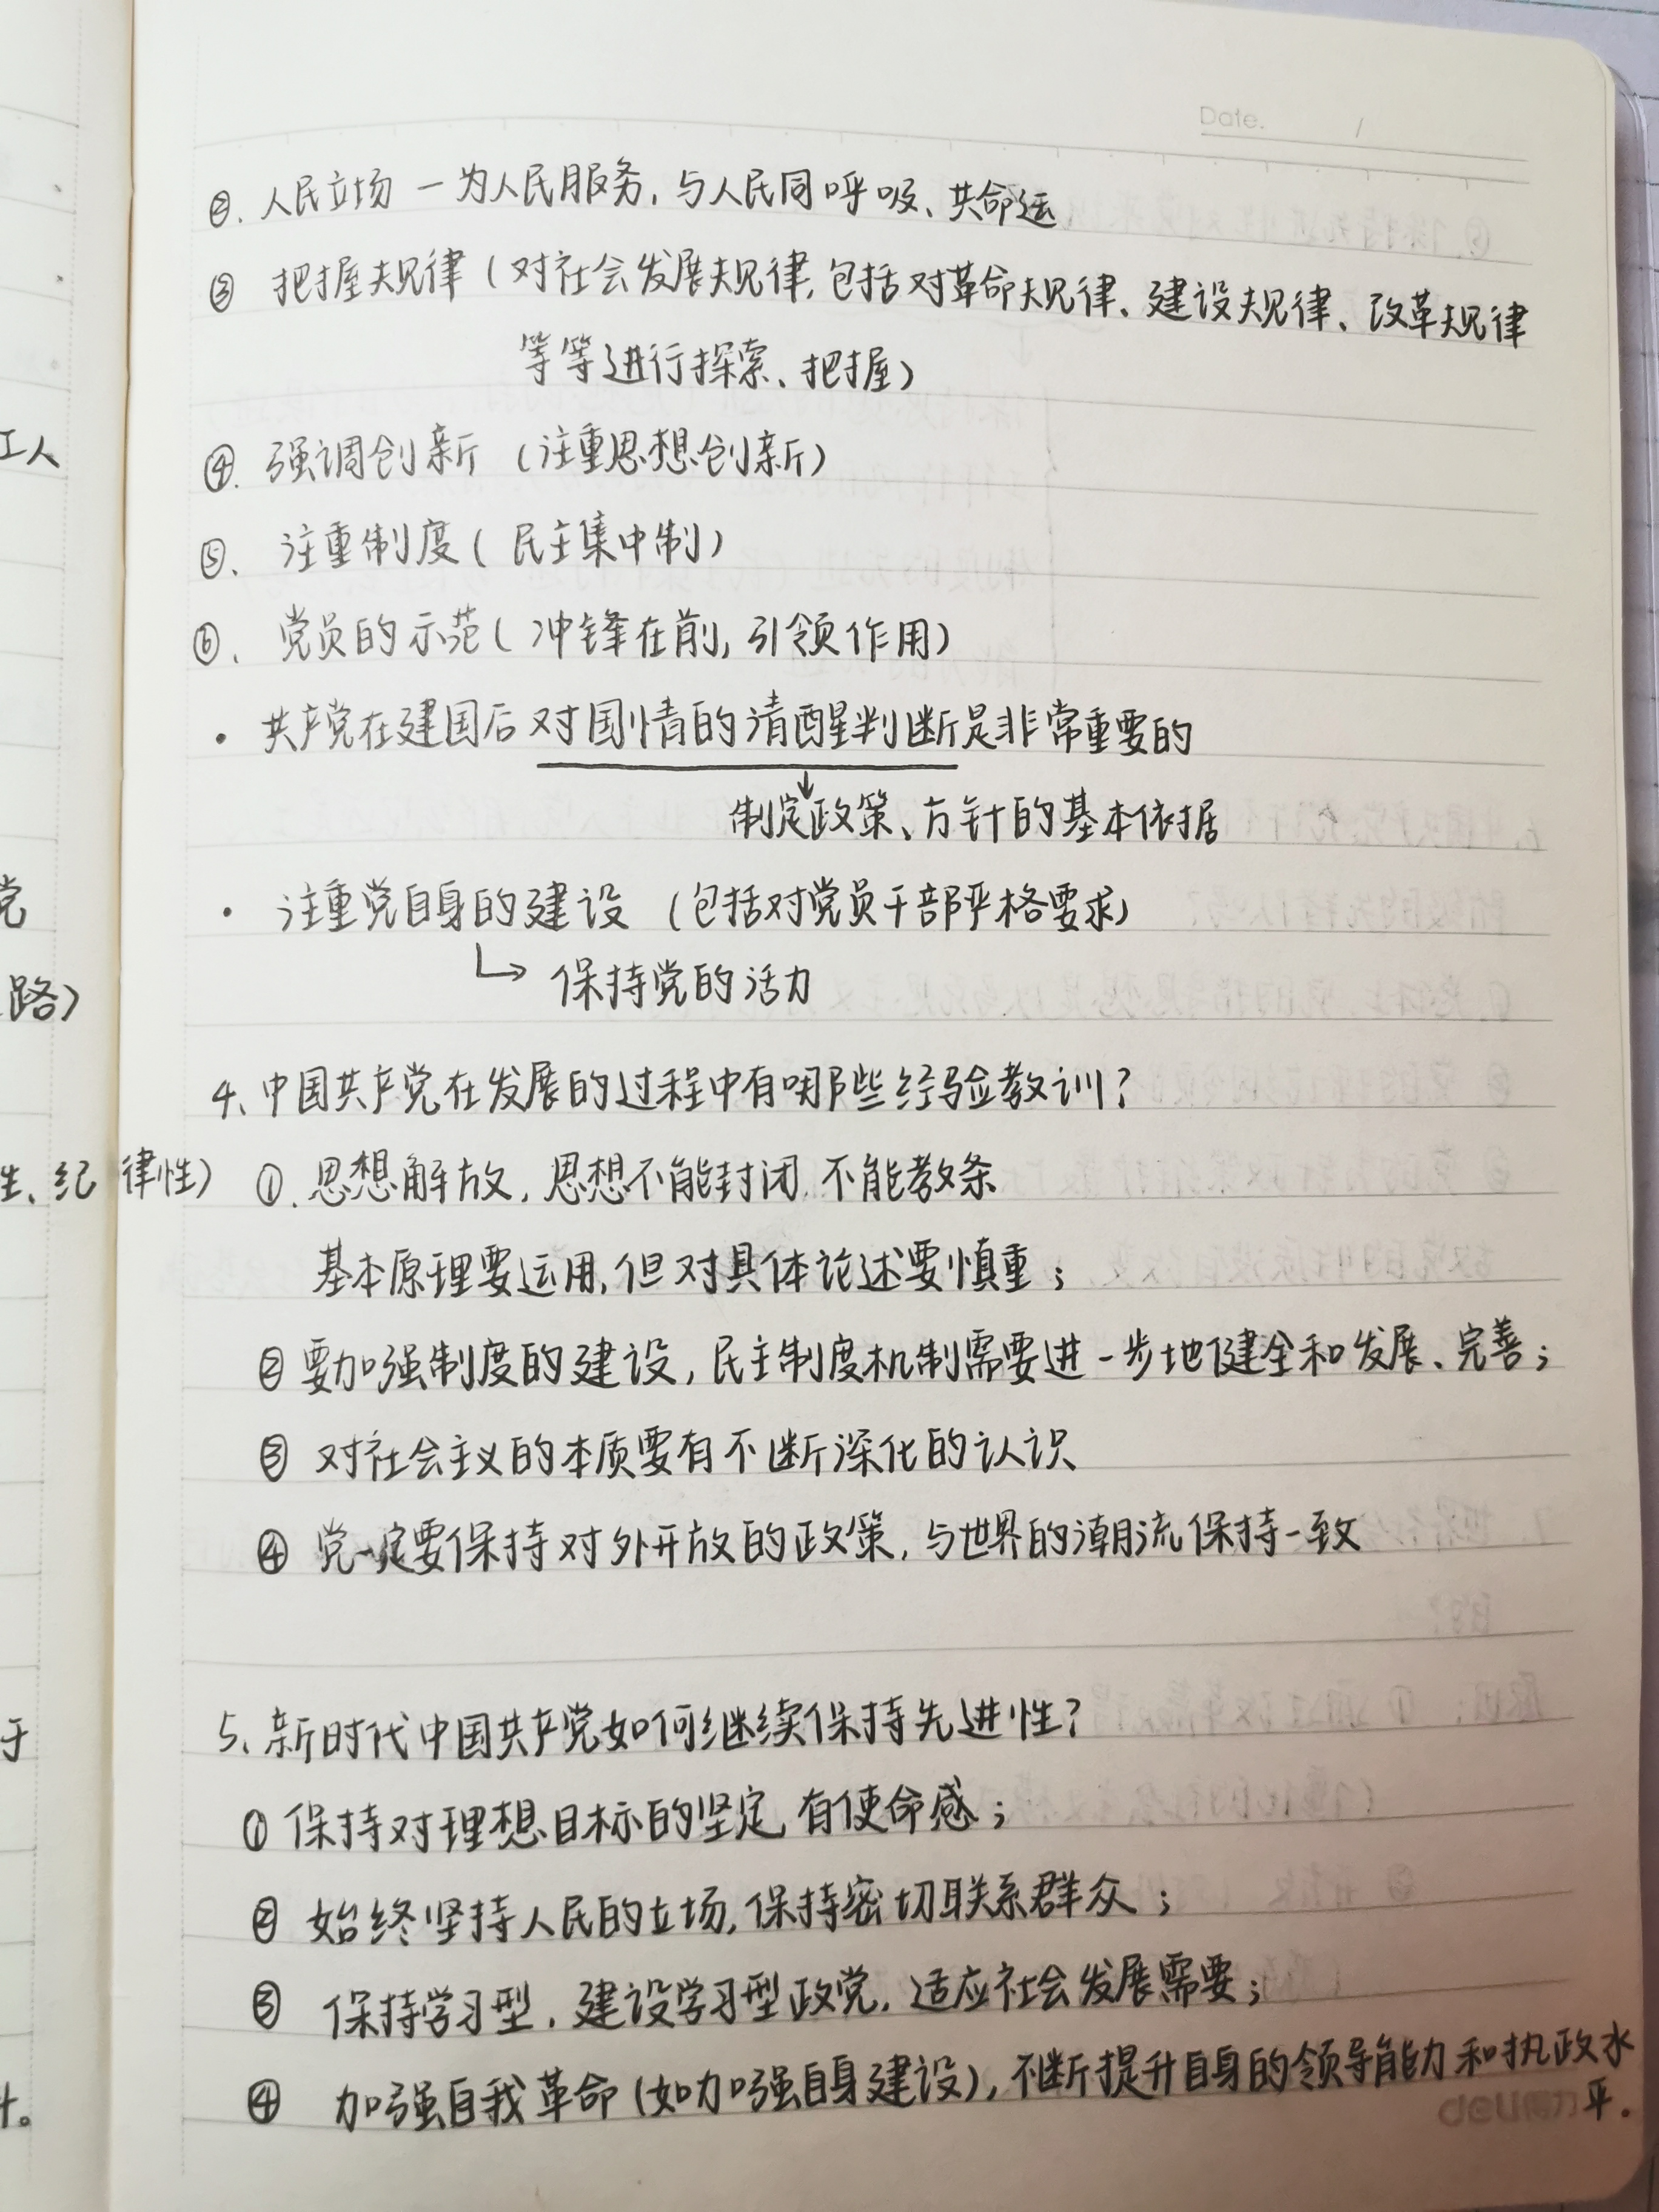 Date. /
②. 人民立场 — 为人民服务, 与人民同呼吸、共命运
③ 把握规律 (对社会发展规律, 包括对革命规律、建设规律、改革规律
等等进行探索、把握)
工人
④. 强调创新 (注重思想创新)
⑤、 注重制度 (民主集中制)
⑥、 党员的示范 (冲锋在前, 引领作用)
· 共产党在建国后对国情的清醒判断是非常重要的
↓
制定政策、方针的基本依据
党
· 注重党自身的建设 (包括对党员干部严格要求)
↳ 保持党的活力
路)
4、中国共产党在发展的过程中有哪些经验教训?
生、纪律性)
①. 思想解放, 思想不能封闭, 不能教条
基本原理要运用, 但对具体论述要慎重;
② 要加强制度的建设, 民主制度机制需要进一步地健全和发展、完善;
③ 对社会主义的本质要有不断深化的认识
④ 党一定要保持对外开放的政策, 与世界的潮流保持一致
于
5、新时代中国共产党如何继续保持先进性?
① 保持对理想目标的坚定, 有使命感;
② 始终坚持人民的立场, 保持密切联系群众;
③ 保持学习型, 建设学习型政党, 适应社会发展需要;
④ 加强自我革命 (如加强自身建设), 不断提升自身的领导能力和执政水
平.
deli得力